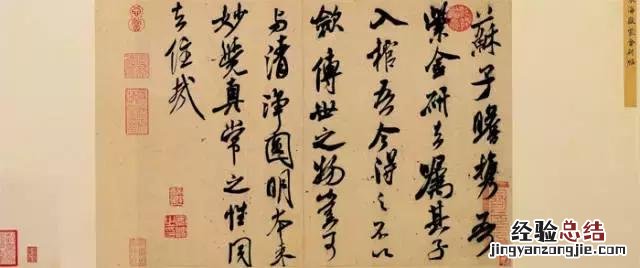 蘇子瞻携吾
紫金研去嘱其子
入棺吾今得之不以
斂傳世之物豈可
与清淨圓明本来
妙覺真常之性同
去住哉
海嶽紫金研帖
经验总结
jingyanzongjie.com